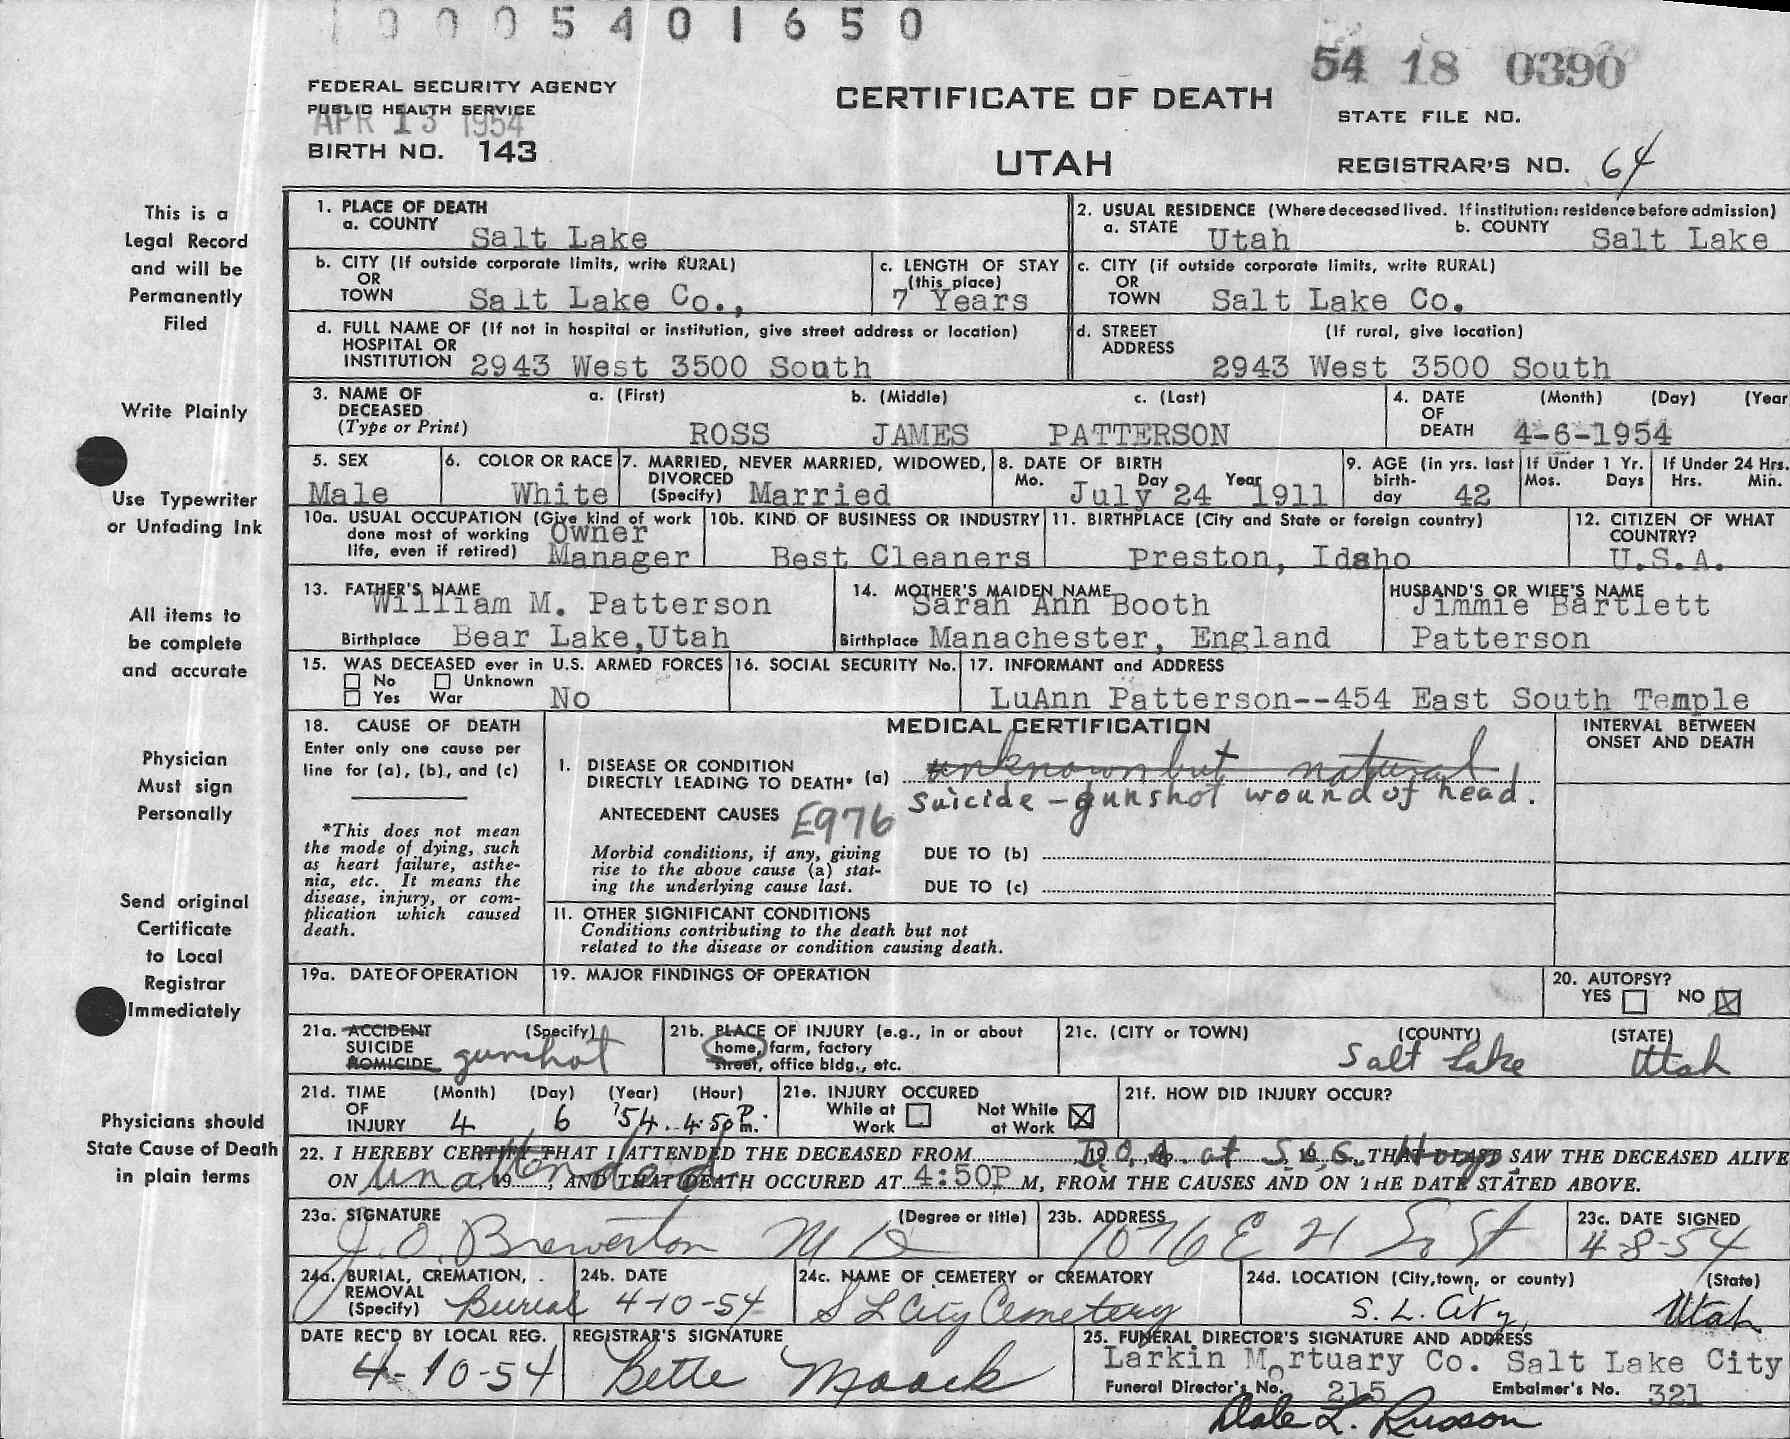 10005401650
54 18 0390
FEDERAL SECURITY AGENCY
PUBLIC HEALTH SERVICE
APR 13 1954
BIRTH NO. 143
CERTIFICATE OF DEATH
UTAH
STATE FILE NO.
REGISTRAR'S NO. 64
This is a
Legal Record
and will be
Permanently
Filed
Write Plainly
Use Typewriter
or Unfading Ink
All items to
be complete
and accurate
Physician
Must sign
Personally
Send original
Certificate
to Local
Registrar
Immediately
Physicians should
State Cause of Death
in plain terms
1. PLACE OF DEATH
a. COUNTY Salt Lake
2. USUAL RESIDENCE (Where deceased lived. If institution: residence before admission)
a. STATE Utah b. COUNTY Salt Lake
b. CITY (If outside corporate limits, write RURAL)
OR
TOWN Salt Lake Co.,
c. LENGTH OF STAY
(this place)
7 Years
c. CITY (if outside corporate limits, write RURAL)
OR
TOWN Salt Lake Co.
d. FULL NAME OF (If not in hospital or institution, give street address or location)
HOSPITAL OR
INSTITUTION 2943 West 3500 South
d. STREET (If rural, give location)
ADDRESS
2943 West 3500 South
3. NAME OF a. (First) b. (Middle) c. (Last)
DECEASED
(Type or Print) ROSS JAMES PATTERSON
4. DATE (Month) (Day) (Year
OF
DEATH 4-6-1954
5. SEX
Male
6. COLOR OR RACE
White
7. MARRIED, NEVER MARRIED, WIDOWED,
DIVORCED
(Specify) Married
8. DATE OF BIRTH
Mo. Day Year
July 24 1911
9. AGE (in yrs. last
birth-
day 42
If Under 1 Yr.
Mos. Days
If Under 24 Hrs.
Hrs. Min.
10a. USUAL OCCUPATION (Give kind of work
done most of working Owner
life, even if retired) Manager
10b. KIND OF BUSINESS OR INDUSTRY
Best Cleaners
11. BIRTHPLACE (City and State or foreign country)
Preston, Idaho
12. CITIZEN OF WHAT
COUNTRY?
U.S.A.
13. FATHER'S NAME
William M. Patterson
Birthplace Bear Lake, Utah
14. MOTHER'S MAIDEN NAME
Sarah Ann Booth
Birthplace Manachester, England
HUSBAND'S OR WIFE'S NAME
Jimmie Bartlett
Patterson
15. WAS DECEASED ever in U.S. ARMED FORCES
No Unknown
Yes War No
16. SOCIAL SECURITY No.
17. INFORMANT and ADDRESS
LuAnn Patterson--454 East South Temple
18. CAUSE OF DEATH
Enter only one cause per
line for (a), (b), and (c)
*This does not mean
the mode of dying, such
as heart failure, asthe-
nia, etc. It means the
disease, injury, or com-
plication which caused
death.
MEDICAL CERTIFICATION
I. DISEASE OR CONDITION
DIRECTLY LEADING TO DEATH* (a) unknown but natural
suicide - gunshot wound of head.
ANTECEDENT CAUSES E976
Morbid conditions, if any, giving
rise to the above cause (a) stat-
ing the underlying cause last.
DUE TO (b)
DUE TO (c)
II. OTHER SIGNIFICANT CONDITIONS
Conditions contributing to the death but not
related to the disease or condition causing death.
INTERVAL BETWEEN
ONSET AND DEATH
19a. DATE OF OPERATION
19. MAJOR FINDINGS OF OPERATION
20. AUTOPSY?
YES NO X
21a. ACCIDENT (Specify)
SUICIDE
HOMICIDE gunshot
21b. PLACE OF INJURY (e.g., in or about
home, farm, factory
street, office bldg., etc.
21c. (CITY or TOWN) (COUNTY) (STATE)
Salt Lake Utah
21d. TIME (Month) (Day) (Year) (Hour)
OF
INJURY 4 6 '54 4:50 P.m.
21e. INJURY OCCURED
While at Work Not While at Work X
21f. HOW DID INJURY OCCUR?
22. I HEREBY CERTIFY THAT I ATTENDED THE DECEASED FROM 19 D.O.A. at S.L.G. Hosp. 19 , THAT I LAST SAW THE DECEASED ALIVE
ON unattended 19 , AND THAT DEATH OCCURED AT 4:50P M, FROM THE CAUSES AND ON THE DATE STATED ABOVE.
23a. SIGNATURE (Degree or title)
J. O. Brewerton M D
23b. ADDRESS
1076 E 21 So St
23c. DATE SIGNED
4-8-54
24a. BURIAL, CREMATION,
REMOVAL
(Specify) Burial
24b. DATE
4-10-54
24c. NAME OF CEMETERY or CREMATORY
S L City Cemetery
24d. LOCATION (City, town, or county) (State)
S. L. City, Utah
DATE REC'D BY LOCAL REG.
4-10-54
REGISTRAR'S SIGNATURE
Bette Maack
25. FUNERAL DIRECTOR'S SIGNATURE AND ADDRESS
Larkin Mortuary Co. Salt Lake City
Funeral Director's No. 215 Embalmer's No. 321
Dale L. Russon